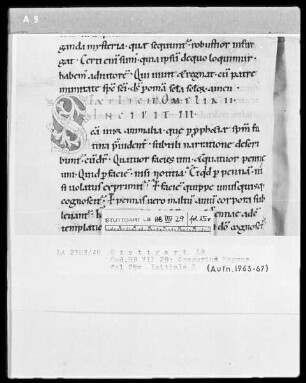 A 9
ganda mysteria que sequunt robustior insur
gat. Certi eni sim quia ipsu de quo loquimur
habem adiutore. Qui uiuit & regnat cu patre
in unitate sps sci ds p oma scla sclor. amen.
Explicit Omelia II
Incipit III
SCA IIII animalia que p pphetie spm fu
tura puident subtili narratione descri
bunt cu dr. Quatuor facies uni & quatuor penne
uni. Quid p facie nisi notitia
nisi uolatus exprimit. P facie quippe unusquisq;
cognoscit. P pennas uero in altu auiu corpora sub
leuant
templatione
STUTTGART LB HB VII 29 fol. 25v
LA 2383/48 Stuttgart LB
Cod. HB VII 29: Gregorius Magnus
fol 25v Initiale S (Aufn. 1963-67)